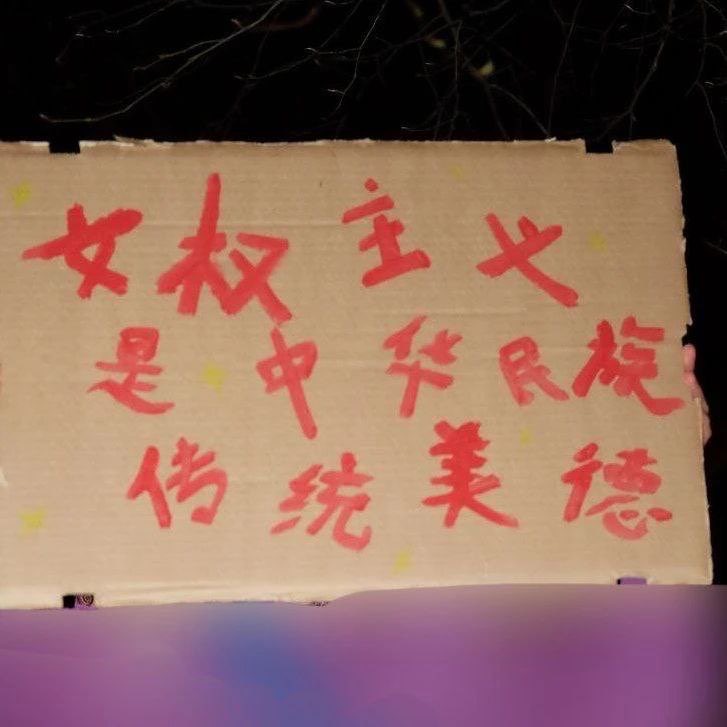 女权主义
是中华民族
传统美德